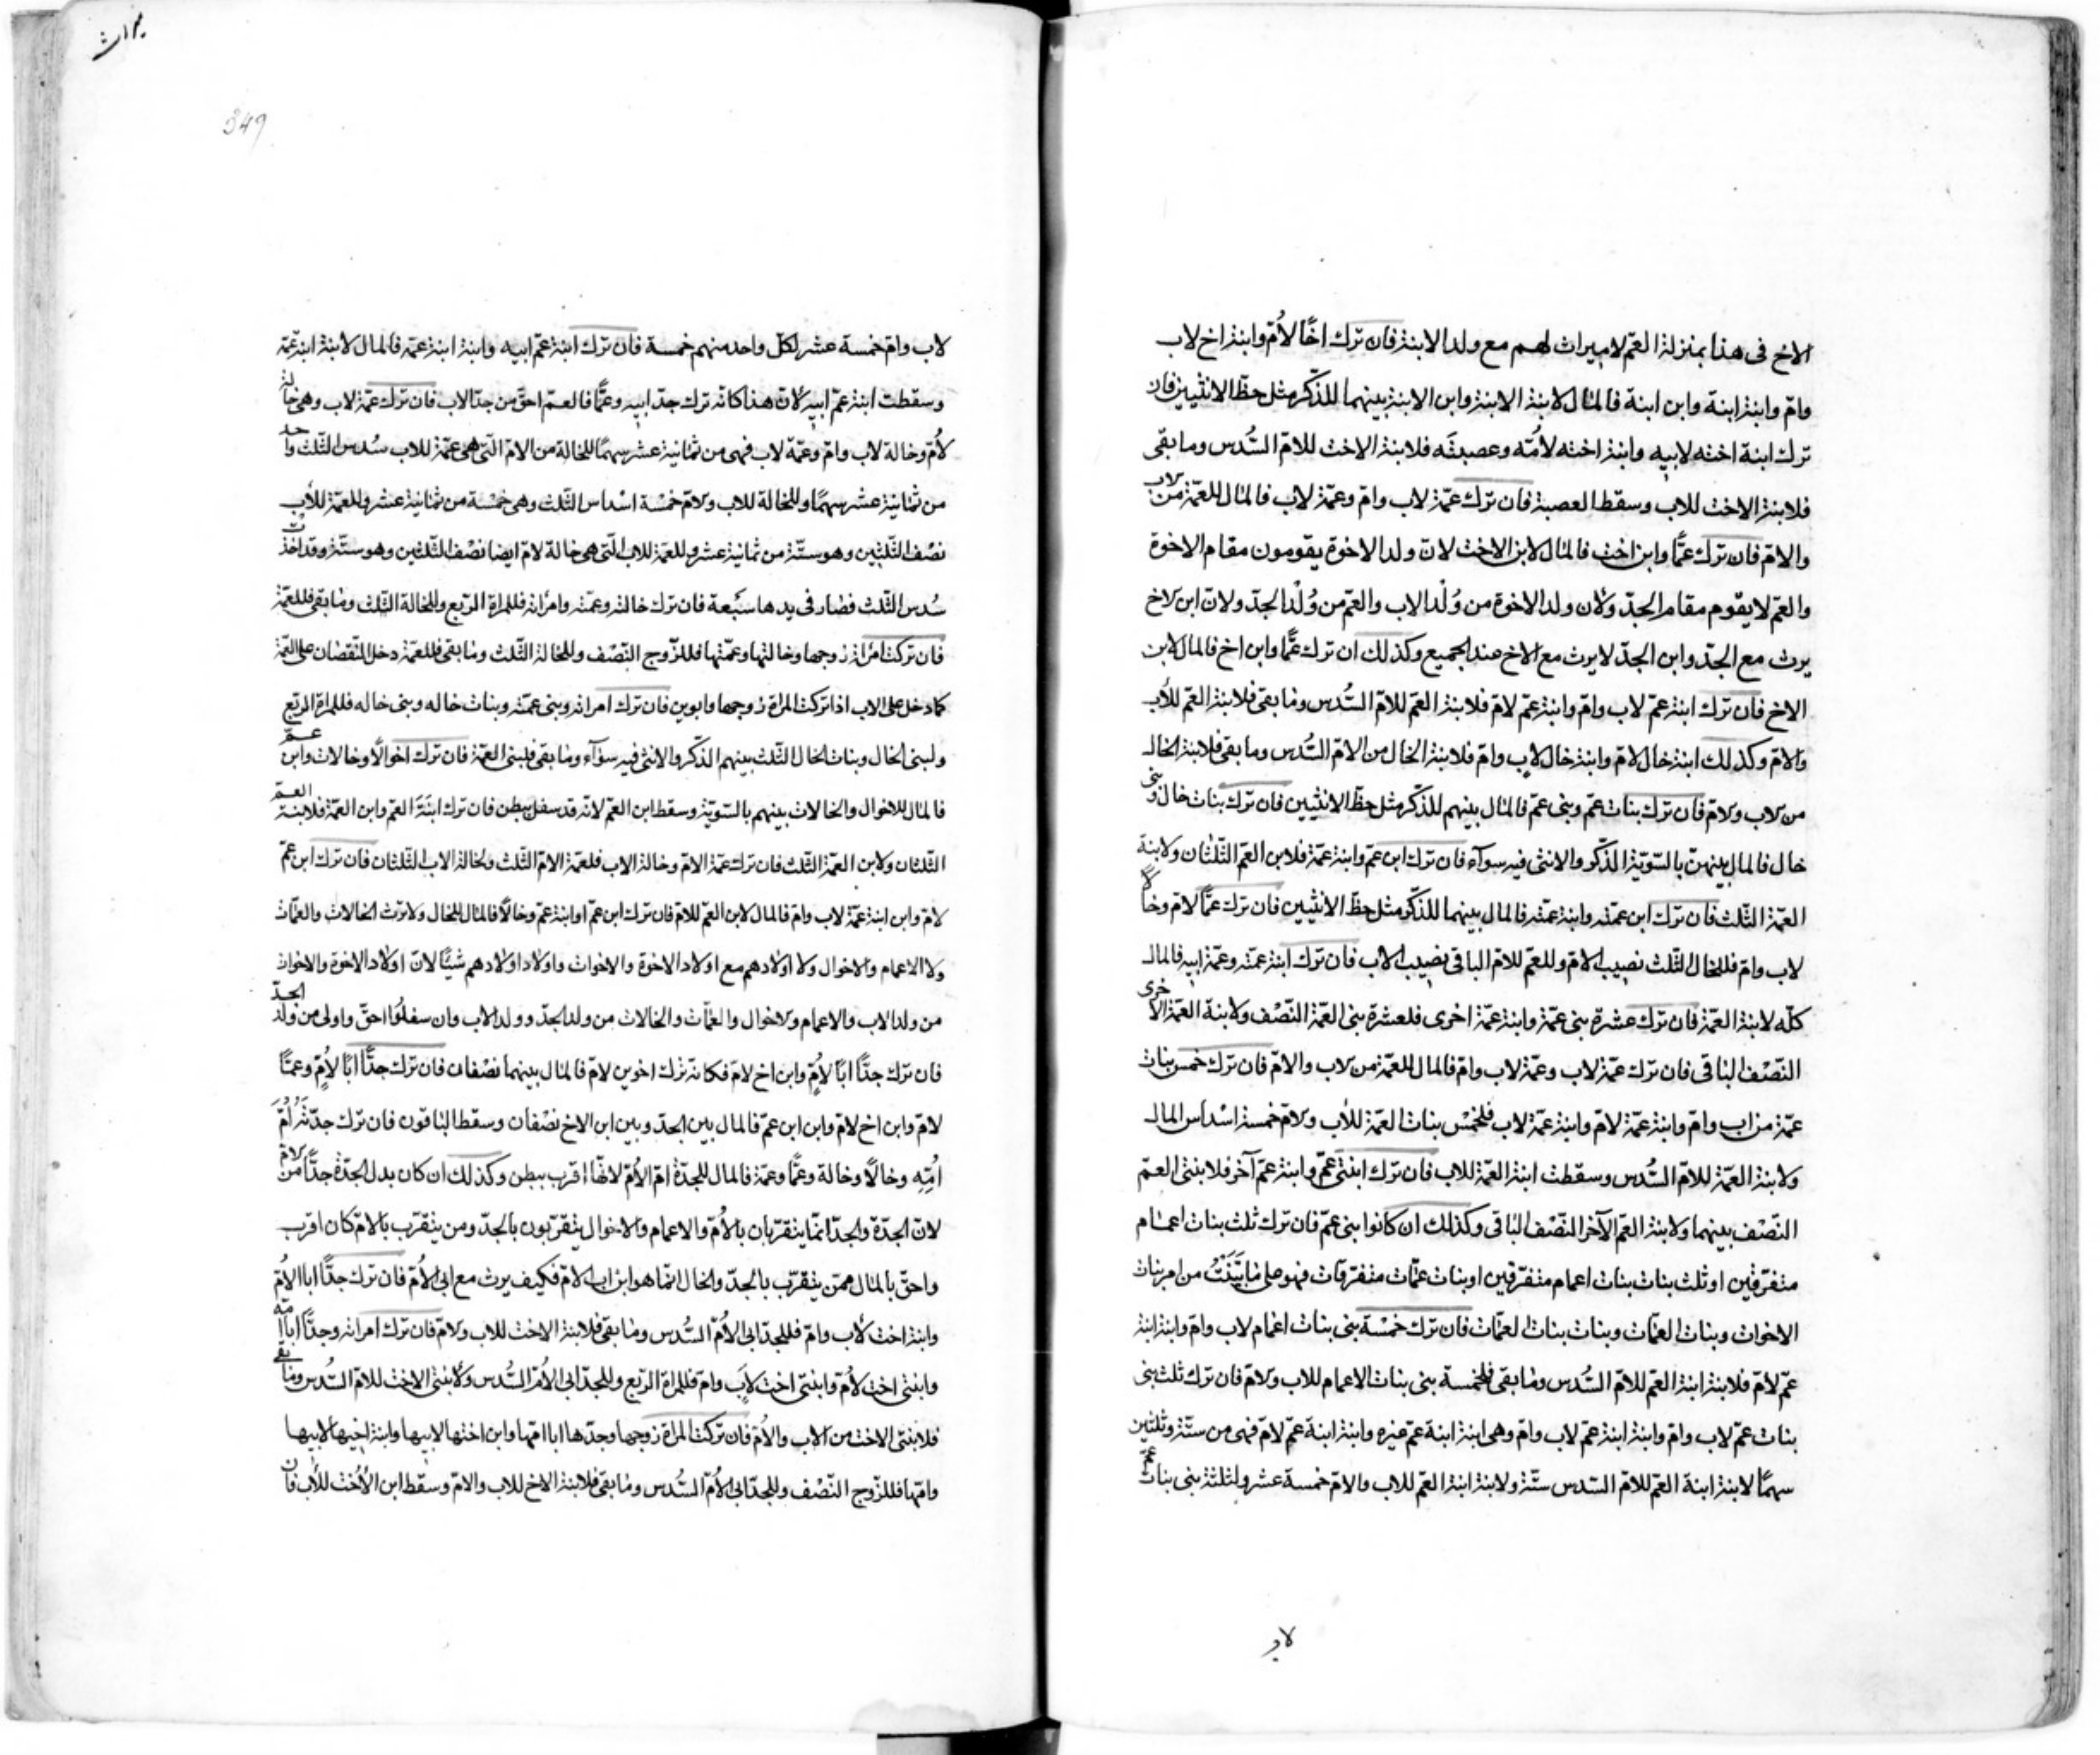 الاخ فى هذا بمنزلة العمّ لاميراث لهم مع ولد الابنة فان ترك اخًا لأمّ وابنة اخ لاب
وامّ وابنة ابنة وابن ابنة فالمال لابنة الابنة وابن الابنة بينهما للذّكر مثل حظّ الانثيين فان
ترك ابنة اخته لابيه وابنة اخته لأمّه وعصبته فلابنة الاخت للامّ السُّدس وما بقى
فلابنة الاخت للاب وسقط العصبة فان ترك عمّة لاب وامّ وعمّة لاب فالمال للعمّة من الاب
والامّ فان ترك عمًّا وابن اخت فالمال لابن الاخت لانّ ولد الاخوة يقومون مقام الاخوة
والعمّ لا يقوم مقام الجدّ ولأن ولد الاخوة من وُلْد الاب والعمّ من وُلْد الجدّ ولانّ ابن الاخ
يرث مع الجدّ وابن الجدّ لا يرث مع الاخ عند الجميع وكذلك ان ترك عمًّا وابن اخ فالمال لابن
الاخ فان ترك ابنة عمّ لاب وامّ وابنة عمّ لامّ فلابنة العمّ للامّ السُّدس وما بقى فلابنة العمّ للأب
والامّ وكذلك ابنة خال لامّ وابنة خال لاب وامّ فلابنة الخال من الامّ السُّدس وما بقى فلابنة الخال
من الاب والامّ فان ترك بنات عمّ وبنى عمّ فالمال بينهم للذّكر مثل حظّ الانثيين فان ترك بنات خال وبنى
خال فالمال بينهن بالسّويّة الذّكر والانثى فيه سواء فان ترك ابن عمّ وابنة عمّة فلابن العمّ الثّلثان ولابنة
العمّة الثّلث فان ترك ابن عمّته وابنة عمّته فالمال بينهما للذّكر مثل حظّ الانثيين فان ترك عمًّا لامّ وخالًا
لاب وامّ فللخال الثّلث نصيب الامّ وللعمّ للامّ الباقى نصيب الاب فان ترك ابنة عمّته وعمّة ابيه فالمال
كلّه لابنة العمّة فان ترك عشرة بنى عمّة وابنة عمّة اخرى فلعشرة بنى العمّة النّصف ولابنة العمّة الاخرى
النّصف الباقى فان ترك عمّة لاب وعمّة لاب وامّ فالمال للعمّة من الاب والامّ فان ترك خمس بنات
عمّة من اب وامّ وابنة عمّة لامّ وابنة عمّة لاب فلخمس بنات العمّة للأب والامّ خمسة اسداس المال
ولابنة العمّة للامّ السُّدس وسقطت ابنة العمّة للاب فان ترك ابنتى عمّ وابنة عمّ آخر فلابنتى العمّ
النّصف بينهما ولابنة العمّ الآخر النّصف الباقى وكذلك ان كانوا بنى عمّ فان ترك ثلث بنات اعمام
متفرّقين او ثلث بنات بنات اعمام متفرّقين او بنات عمّات متفرّقات فهو على ما بيّنت من امر بنات
الاخوات وبنات العمّات وبنات بنات العمّات فان ترك خمسة بنى بنات اعمام لاب وامّ وابنة ابنة
عمّ لامّ فلابنة ابنة العمّ للامّ السُّدس وما بقى فلخمسة بنى بنات الاعمام للاب والامّ فان ترك ثلث بنى
بنات عمّ لاب وامّ وابنة ابنة عمّ لاب وامّ وهى ابنة ابنة عمّ غيره وابنة ابنة عمّ لامّ فهى من ستّة وثلثين
سهمًا لابنة ابنة العمّ للامّ السّدس ستّة ولابنة ابنة العمّ للاب والامّ خمسة عشر ولثلثة بنى بنات عمّ
349
لاب وامّ خمسة عشر لكلّ واحد منهم خمسة فان ترك ابنة عمّ ابيه وابنة ابنة عمّه فالمال لابنة ابنة عمّه
وسقطت ابنة عمّ ابيه لأنّ هذا كانّه ترك جدّ ابيه وعمًّا فالعمّ احقّ من جدّ الاب فان ترك عمّة لاب وهى خالة
لأمّ وخالة لاب وامّ وعمّة لاب فهى من ثمانية عشر سهمًا للخالة من الامّ الّتى هى عمّة للاب سُدس الثّلث واحد
من ثمانية عشر سهمًا وللخالة للاب والامّ خمسة اسداس الثّلث وهى خمسة من ثمانية عشر وللعمّة للأب
نصف الثّلثين وهو ستّة من ثمانية عشر وللعمّة للاب الّتى هى خالة لامّ ايضا نصف الثّلثين وهو ستّة وقد اخذت
سُدس الثّلث فصار فى يدها سبعة فان ترك خالته وعمّته وامرأته فللمراة الرّبع وللخالة الثّلث وما بقى فللعمّة
فان تركت امرأة زوجها وخالتها وعمّتها فللزّوج النّصف وللخالة الثّلث وما بقى فللعمّة دخل النّقصان على العمّة
كما دخل على الاب اذا تركت المراة زوجها وابوين فان ترك امراته وبنى عمّته وبنات خاله وبنى خاله فللمراة الرّبع
ولبنى الخال وبنات الخال الثّلث بينهم الذّكر والانثى فيه سواء وما بقى فلبنى العمّة فان ترك اخوالًا وخالات وابن عمّ
فالمال للاخوال والخالات بينهم بالسّويّة وسقط ابن العمّ لانّه قد سفل ببطن فان ترك ابنة العمّ وابن العمّة فلابنة العمّ
الثّلثان ولابن العمّة الثّلث فان ترك عمّة الامّ وخالة الاب فلعمّة الامّ الثّلث ولخالة الاب الثّلثان فان ترك ابن عمّ
لامّ وابن ابنة عمّة لاب وامّ فالمال لابن العمّ للامّ فان ترك ابن عمّ او ابنة عمّ وخالًا فالمال للخال ولا ترث الخالات والعمّات
ولا الاعمام والاخوال ولا اولادهم مع اولاد الاخوة والاخوات واولاد اولادهم شيئًا لانّ اولاد الاخوة والاخوات
من ولد الاب والاعمام والاخوال والعمّات والخالات من ولد الجدّ وولد الاب وان سفلوا احقّ واولى من ولد الجدّ
فان ترك جدًّا ابًا لأمّ وابن اخ لامّ فكانه ترك اخوين لامّ فالمال بينهما نصفان فان ترك جدًّا ابًا لأمّ وعمًّا
لامّ وابن اخ لامّ وابن ابن عمّ فالمال بين الجدّ وبين ابن الاخ نصفان وسقط الباقون فان ترك جدّته أمّ
أمّه وخالًا وخالة وعمًّا وعمّة فالمال للجدّة امّ الأمّ لانّها اقرب ببطن وكذلك ان كان بدل الجدّة جدًّا من الامّ
لانّ الجدّة والجدّ انّما يتقرّبان بالأمّ والاعمام والاخوال يتقرّبون بالجدّ ومن يتقرّب بالامّ كان اقرب
واحقّ بالمال ممّن يتقرّب بالجدّ والخال انّما هو ابن اب الامّ فكيف يرث مع ابى الأمّ فان ترك جدًّا ابا الأمّ
وابنة اخت لأب وامّ فللجدّ ابى الأمّ السُّدس وما بقى فلابنة الاخت للاب والامّ فان ترك امراته وجدًّا ابا امّه
وابنتى اخت لأمّ وابنتى اخت لاب وامّ فللمراة الرّبع وللجدّ ابى الأمّ السُّدس ولأبنتى الاخت للامّ السُّدس وما بقى
فلابنتى الاخت من الاب والأمّ فان تركت المراة زوجها وجدّها ابا امّها وابن اختها لابيها وابنة اخيها لابيها
وامّها فللزّوج النّصف وللجدّ ابى الأمّ السُّدس وما بقى فلابنة الاخ للاب والامّ وسقط ابن الأخت للأب فان